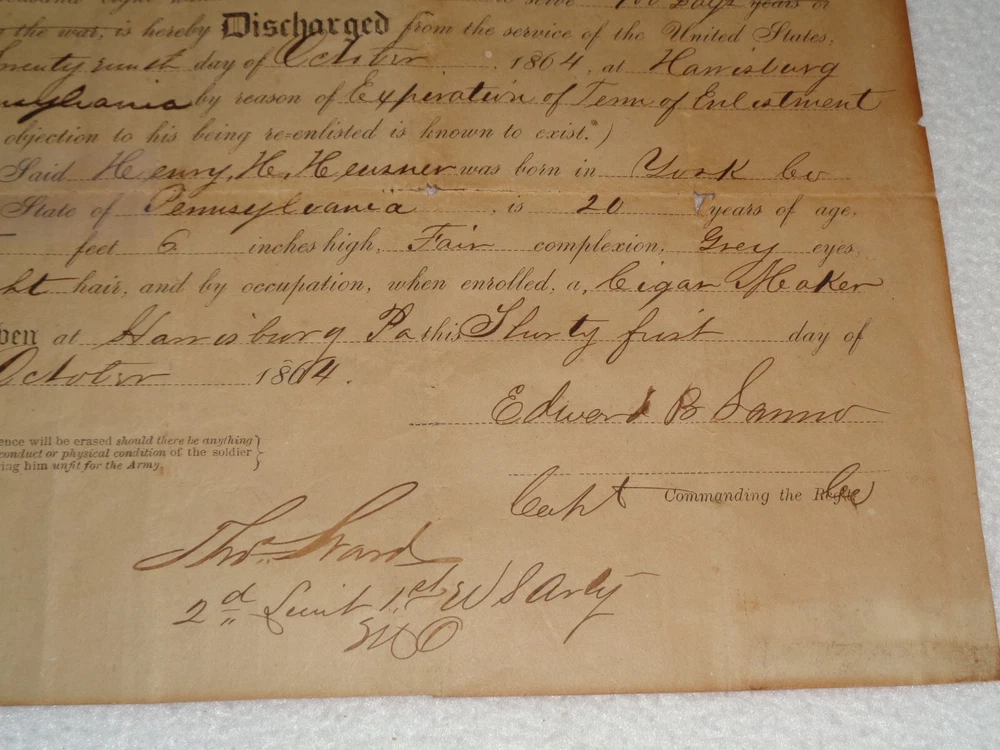 to serve 100 Days years or
the war, is hereby Discharged from the service of the United States,
day of October 1864, at Harrisburg
by reason of Expiration of Term of Enlistment
objection to his being re-enlisted is known to exist.*)
Said Henry H. Heusner was born in York Co
State of Pennsylvania, is 20 years of age,
feet 6 inches high, Fair complexion, Grey eyes,
hair, and by occupation, when enrolled, a Cigar Maker
at Harrisburg Pa this Thirty first day of
October 1864.
Edward B Sanno
ence will be erased should there be anything
conduct or physical condition of the soldier
ing him unfit for the Army.
Capt Commanding the Co
Thos. Ward
2d Lieut 1st U S Arty
M O